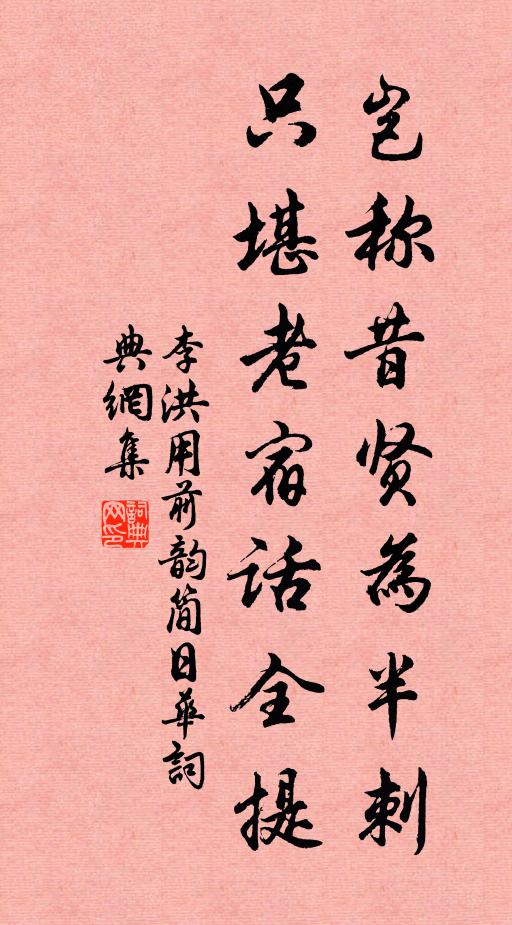 岂称昔贤为半刺
只堪老宿话全提
李洪用前韵简日华詞
典網集
詞典
网印